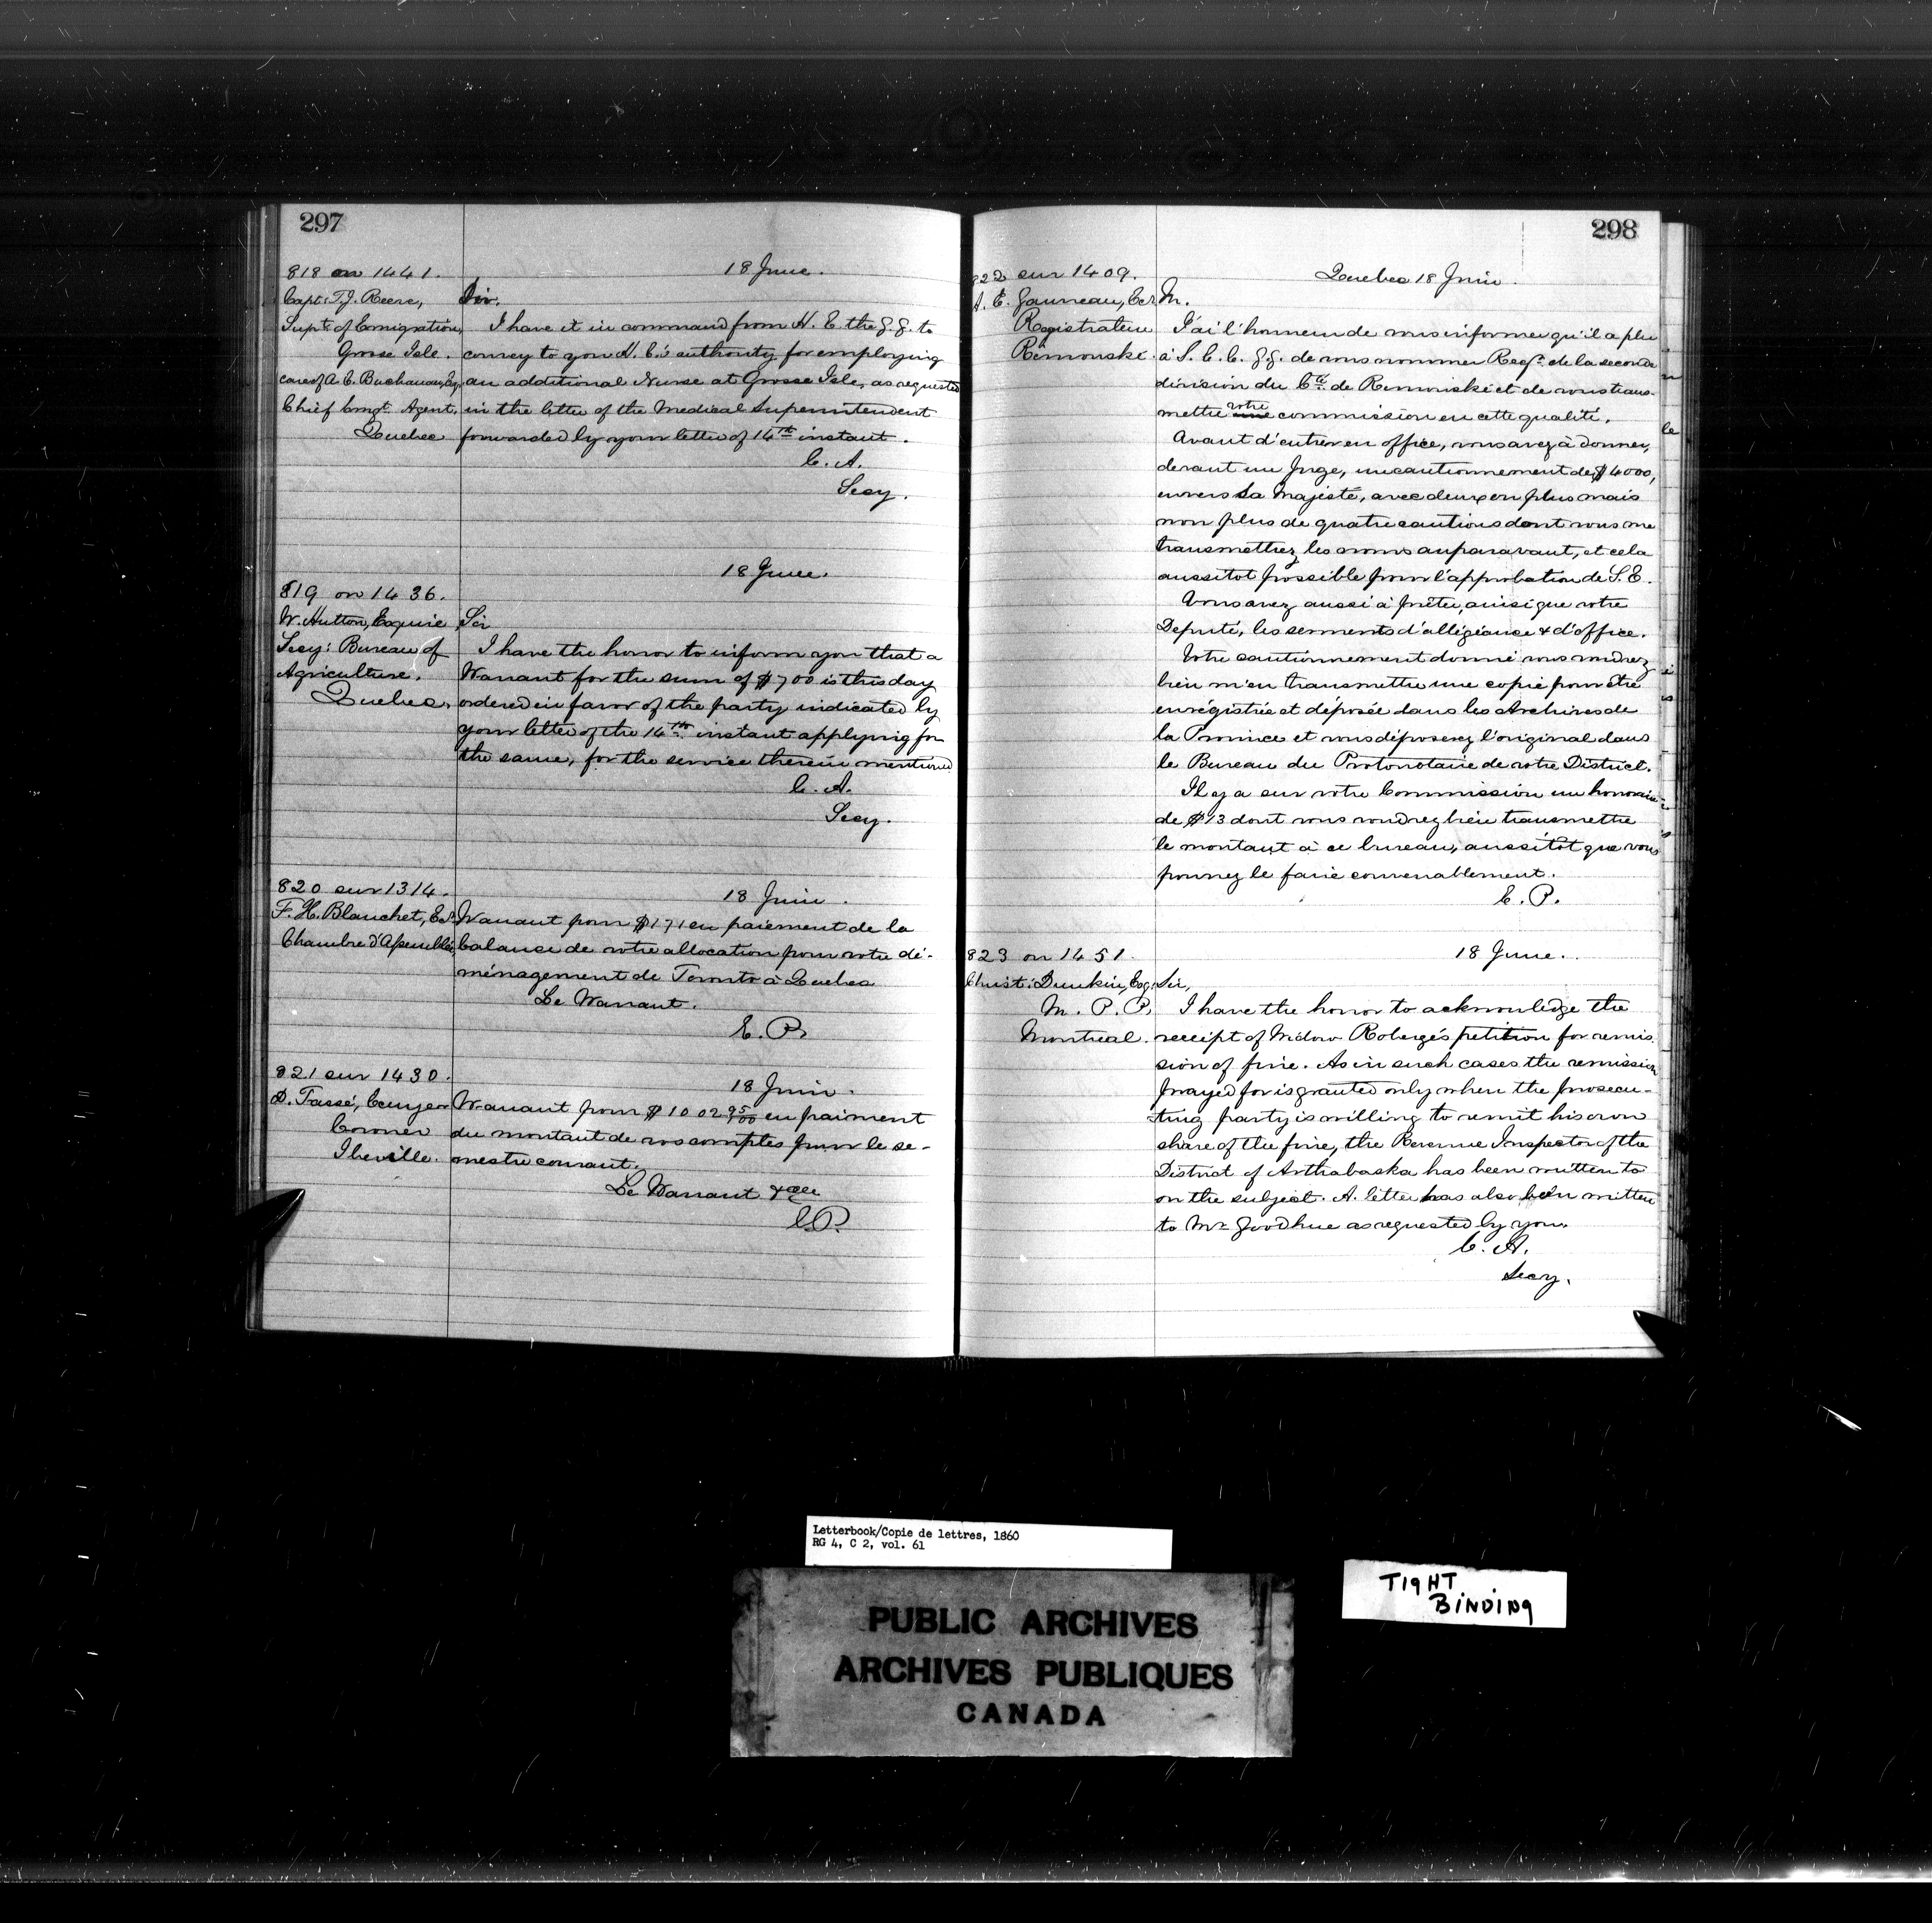 297
818 on 1441.
18 June.
Capt: T.J. Reeve,
Supt: of Emigration,
Grosse Isle.
care of A. C. Buchanan, Esq,
Chief Emgt. Agent,
Quebec
Sir.
I have it in command from H. E. the G. G. to
convey to you H. E.'s authority for employing
an additional Nurse at Grosse Isle, as requested
in the letter of the Medical Superintendent
forwarded by your letter of 14th instant.
C. A.
Secy.
18 June.
819 on 1436.
W. Hutton, Esquire
Secy: Bureau of
Agriculture.
Quebec,
Sir
I have the honor to inform you that a
Warrant for the sum of $700 is this day
ordered in favor of the party indicated by
your letter of the 14th instant applying for
the same, for the service therein mentioned
C. A.
Secy.
820 sur 1314.
18 Juin.
F. H. Blanchet, Ecr
Chambre d'Assemblée,
Warrant pour $171 en paiement de la
balance de votre allocation pour votre dé-
ménagement de Toronto à Quebec
Le Warrant.
E. P.
821 sur 1430.
18 Juin.
D. Tassé, Ecuyer
Coroner
Iberville.
Warrant pour $1002 95/100 en paiment
du montant de vos comptes pour le se-
mestre courant.
Le Warrant &
E. P.
298
822 sur 1409.
Quebec 18 Juin.
Gauvreau, Ecr
Registrateur
Rimouski.
M.
J'ai l'honneur de vous informer qu'il a plu
à S. E. le G. G. de vous nommer Regr. de la seconde
division du Cté. de Rimouski et de vous trans-
mettre votre une commission en cette qualité.
Avant d'entrer en office, vous avez à donner,
devant un Juge, un cautionnement de $4000,
envers Sa Majesté, avec deux ou plus mais
non plus de quatre cautions dont vous me
transmettrez les noms auparavant, et cela
aussitot possible pour l'approbation de S. E.
Vous avez aussi à prêter, ainsi que votre
Deputé, les serments d'allégeance & d'office.
Votre cautionnement donné vous voudrez
bien m'en transmettre une copie pour être
enrégistrée et déposée dans les Archives de
la Province et vous déposerez l'original dans
le Bureau du Protonotaire de votre District.
Il y a sur votre Commission un honoraire
de $13 dont vous voudrez bien transmettre
le montant à ce bureau, aussitôt que vous
pourrez le faire convenablement.
E. P.
823 on 1451.
18 June.
Christ: Dunkin, Esq:
M. P. P.
Montreal.
Sir,
I have the honor to acknowledge the
receipt of Widow Roberge's petition for remis
sion of fine. As in such cases the remission
prayed for is granted only when the prosecu-
ting party is willing to remit his own
share of the fine, the Revenue Inspector of the
District of Arthabaska has been written to
on the subject. A letter has also been written
to Mr Goodhue as requested by you.
C. A.
Secy.
Letterbook/Copie de lettres, 1860
RG 4, C 2, vol. 61
TIGHT
BINDING
PUBLIC ARCHIVES
ARCHIVES PUBLIQUES
CANADA